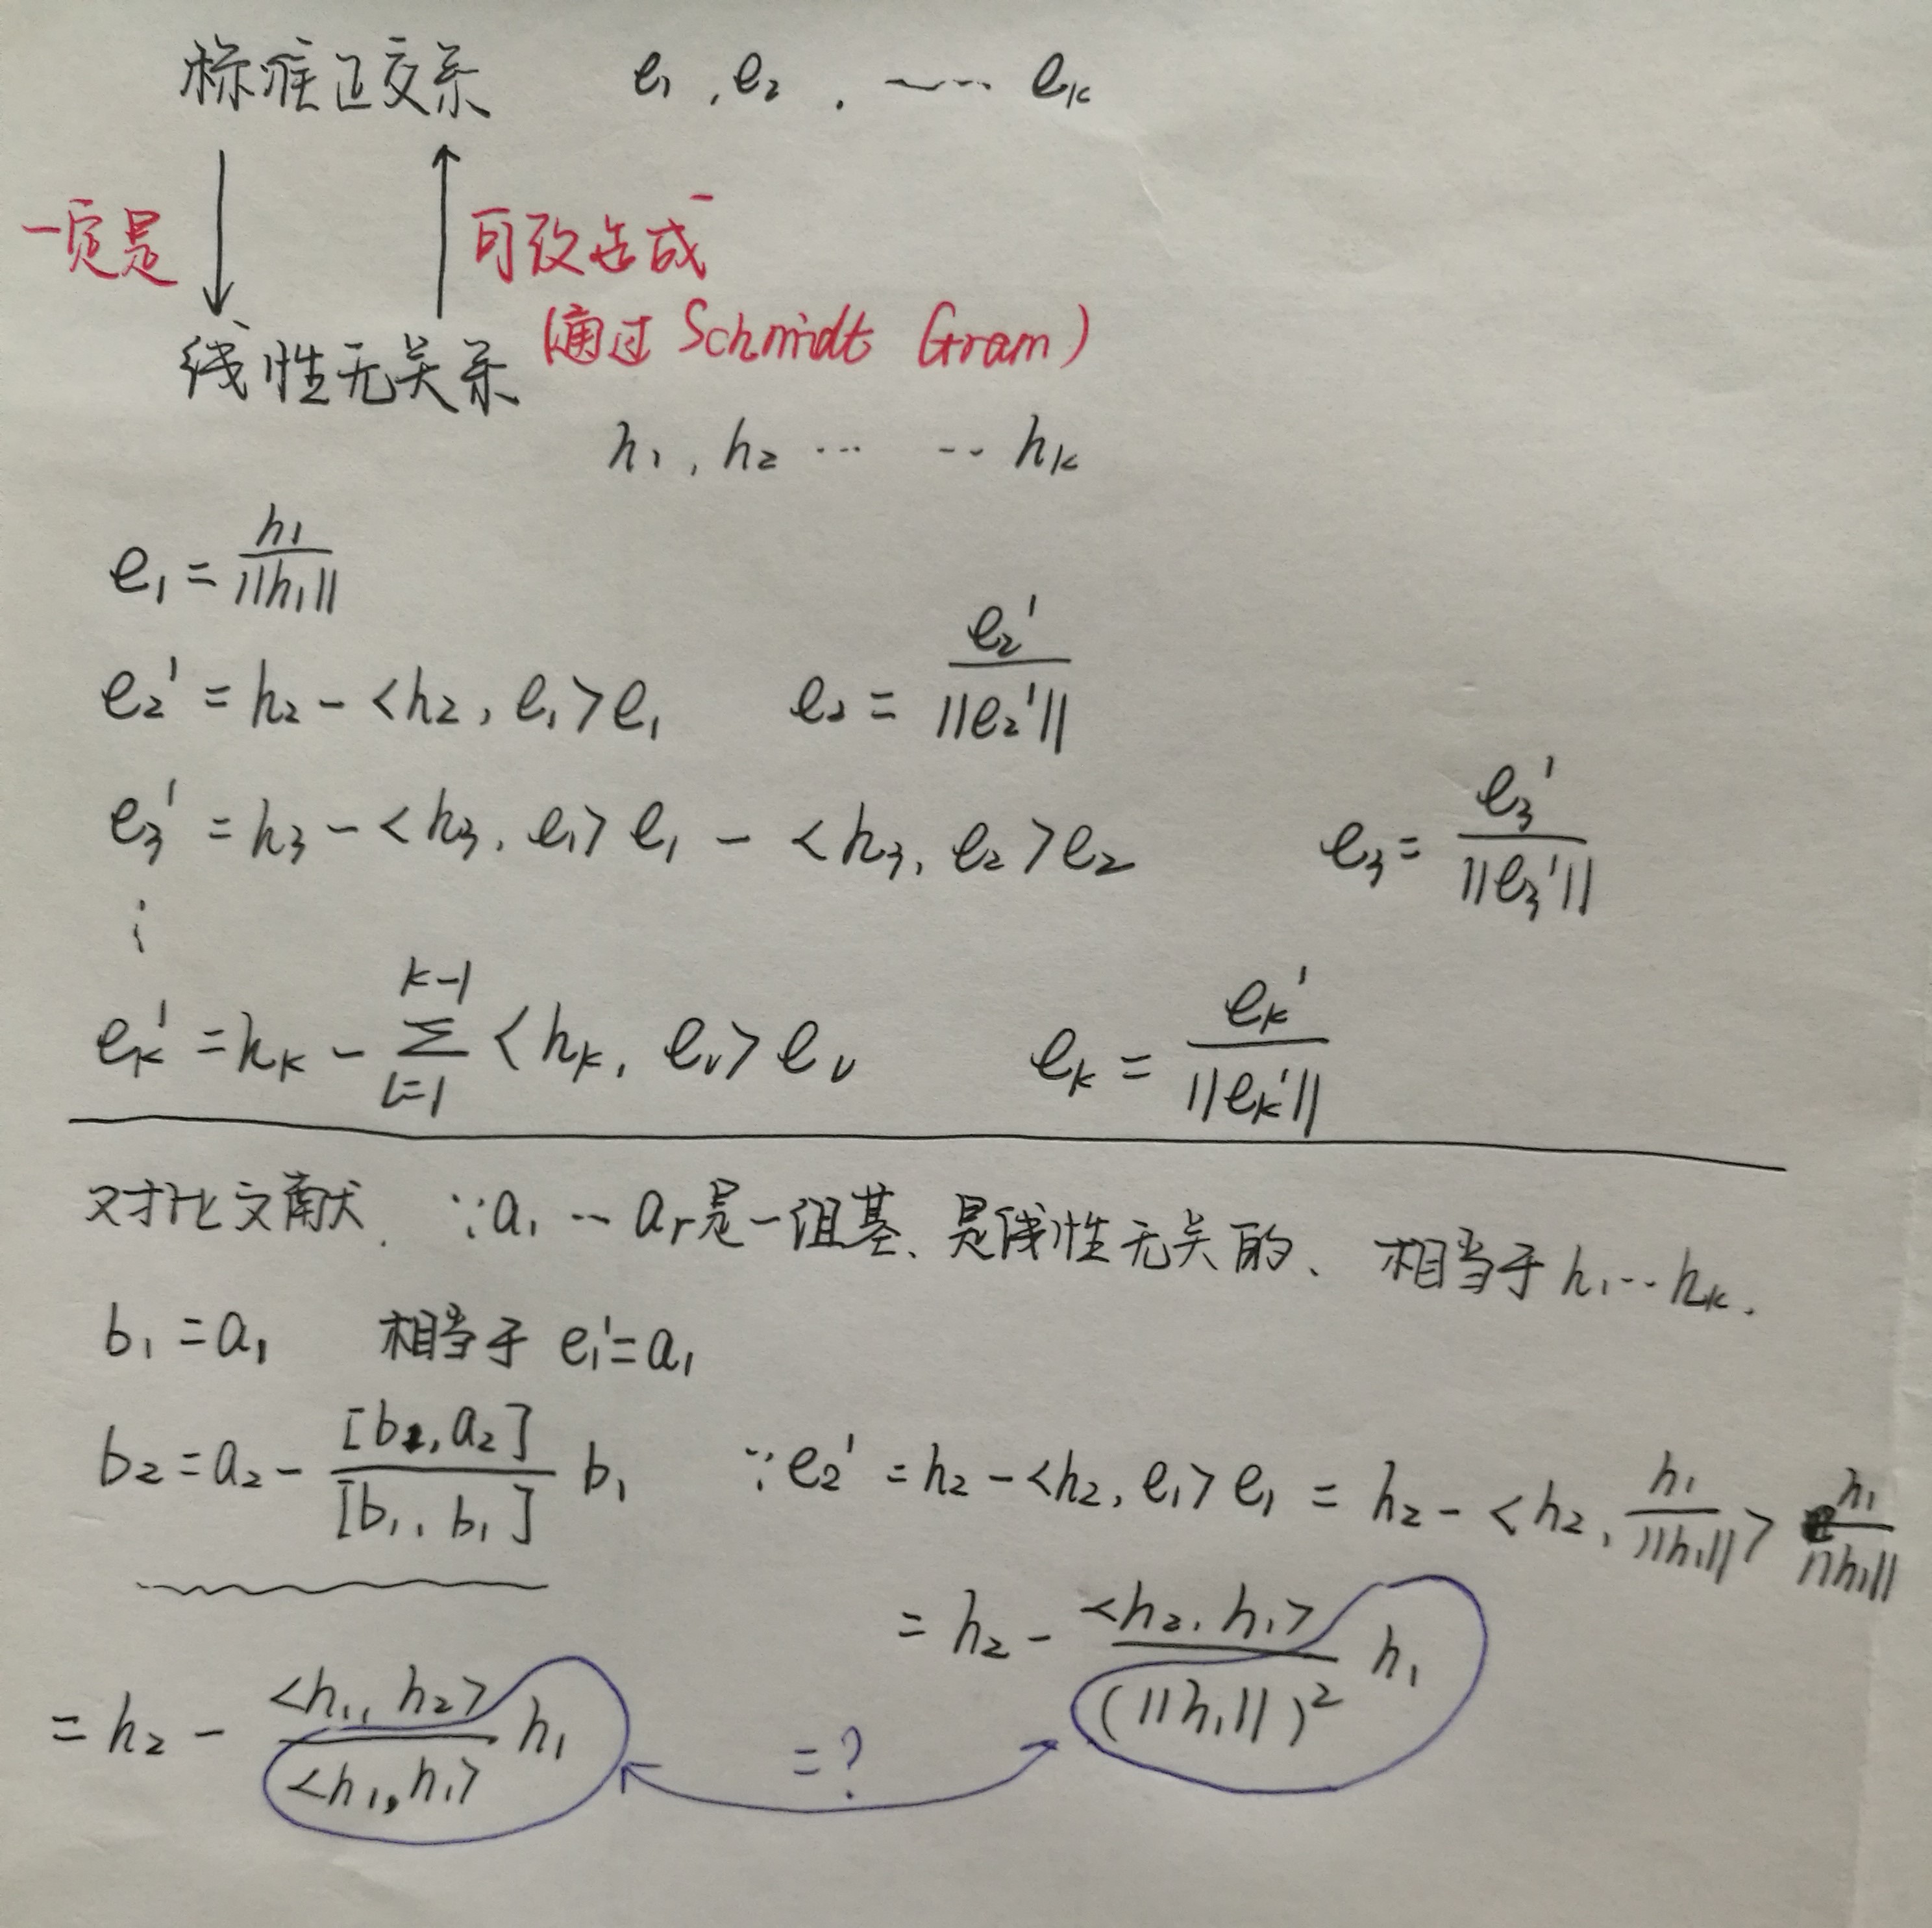 标准正交系 e₁, e₂, ······ eₖ
一定是 可改造成
(通过 Schmidt Gram)
线性无关系
h₁, h₂ ··· ·· hₖ
e₁ = h₁/||h₁||
e₂' = h₂ - <h₂, e₁>e₁ e₂ = e₂'/||e₂'||
e₃' = h₃ - <h₃, e₁>e₁ - <h₃, e₂>e₂ e₃ = e₃'/||e₃'||
⋮
eₖ' = hₖ - ∑_{i=1}^{k-1} <hₖ, eᵢ>eᵢ eₖ = eₖ'/||eₖ'||
对比文献. ∵a₁ ··· aᵣ是一组基、是线性无关的、相当于h₁···hₖ.
b₁ = a₁ 相当于 e₁' = a₁
b₂ = a₂ - [b₁, a₂]/[b₁, b₁] b₁ ∵e₂' = h₂ - <h₂, e₁>e₁ = h₂ - <h₂, h₁/||h₁||> h₁/||h₁||
= h₂ - <h₂, h₁>/(||h₁||)² h₁
= h₂ - <h₁, h₂>/<h₁, h₁> h₁ =?